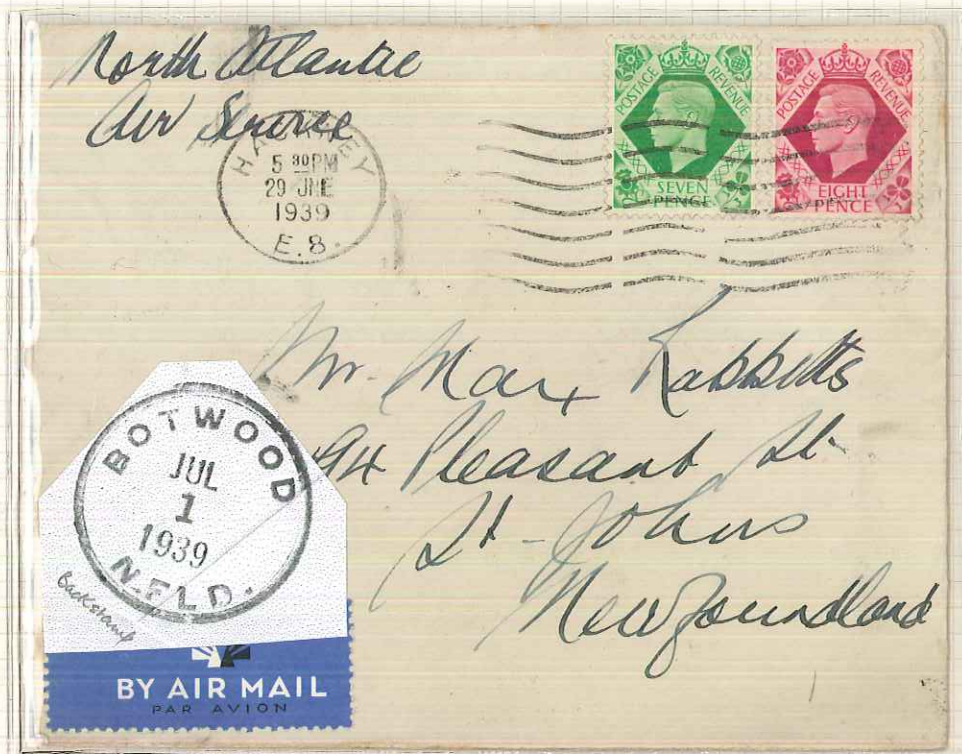 North Atlantic
Air Service
HACKNEY
5 30PM
29 JNE
1939
E.8.
POSTAGE REVENUE
SEVEN
PENCE
POSTAGE REVENUE
EIGHT
PENCE
Mr. Max Rabbitts
94 Pleasant St.
St. Johns
Newfoundland
BOTWOOD
JUL
1
1939
N.FLD.
Backstamp
BY AIR MAIL
PAR AVION